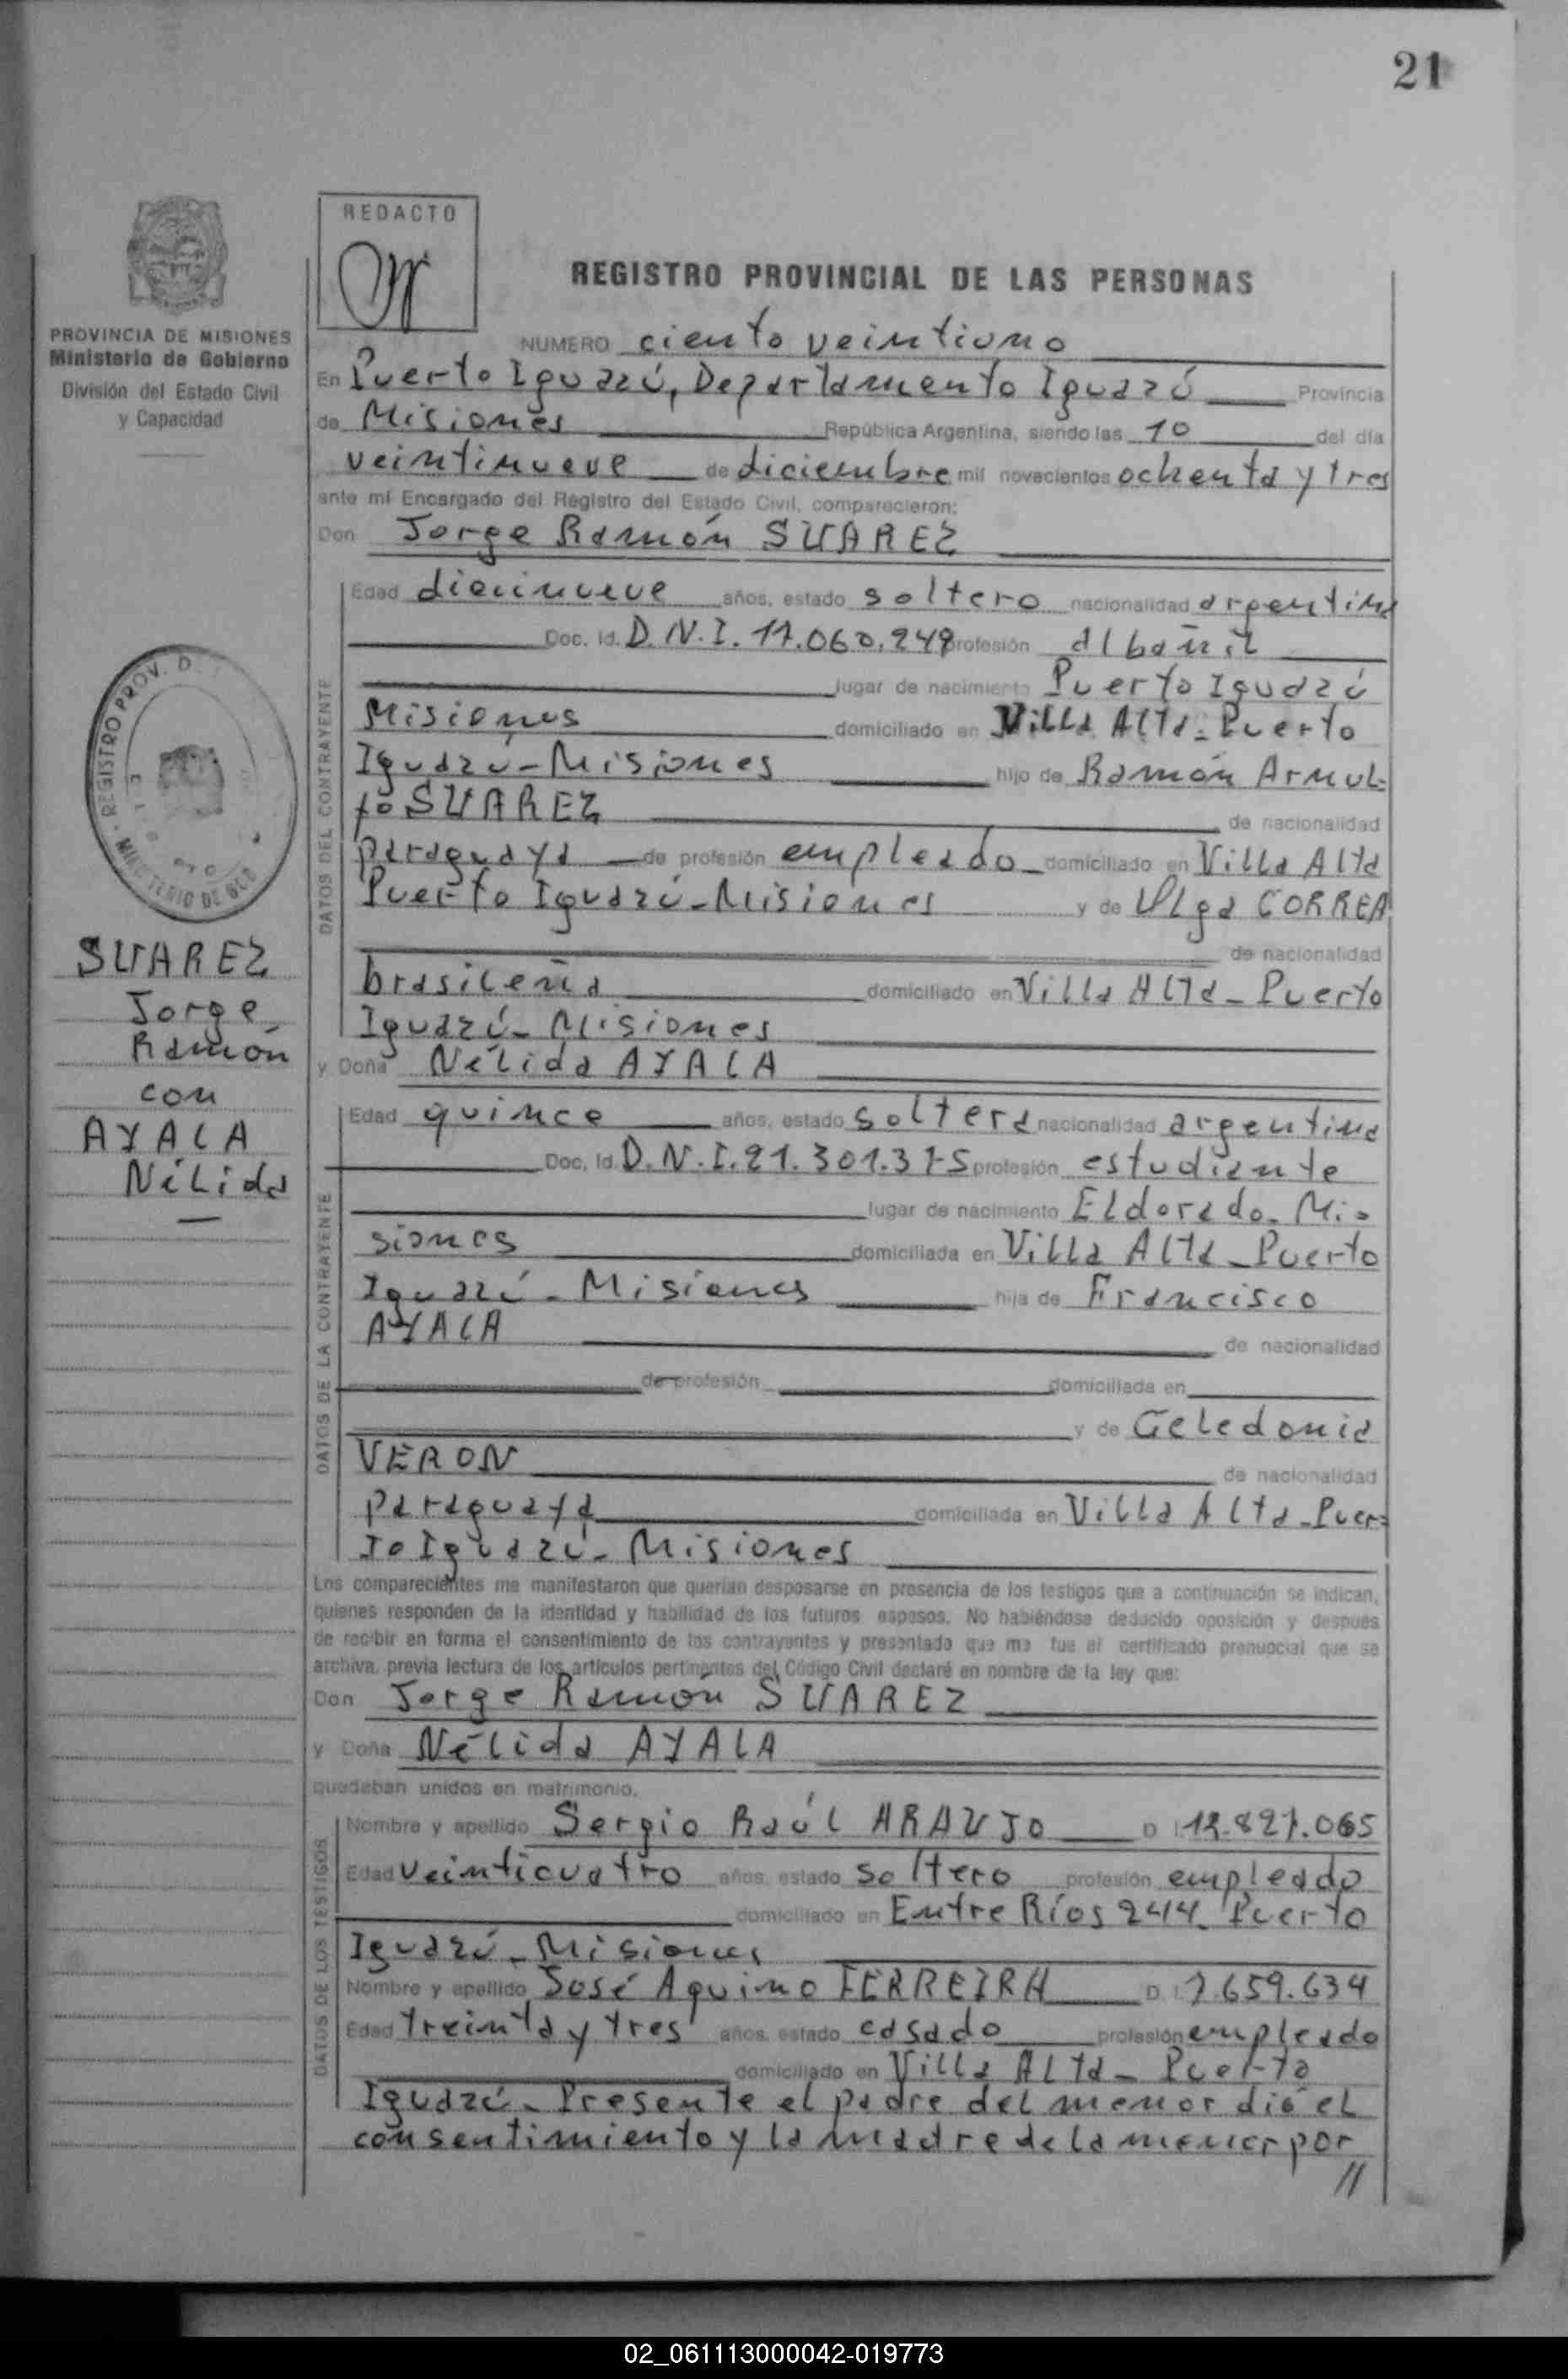 21
REDACTO
REGISTRO PROVINCIAL DE LAS PERSONAS
PROVINCIA DE MISIONES
Ministerio de Gobierno
División del Estado Civil
y Capacidad
NUMERO ciento veintiuno
En Puerto Iguazú, Departamento Iguazú Provincia
de Misiones República Argentina, siendo las 10 del día
veintinueve de diciembre mil novecientos ochenta y tres
ante mí Encargado del Registro del Estado Civil, comparecieron:
Don Jorge Ramón SUAREZ
DATOS DEL CONTRAYENTE
Edad diecinueve años, estado soltero nacionalidad argentina
Doc. Id. D.N.I. 17.060.249 profesión albañil
lugar de nacimiento Puerto Iguazú
Misiones domiciliado en Villa Alta - Puerto
Iguazú - Misiones hijo de Ramón Arnul-
fo SUAREZ de nacionalidad
paraguaya de profesión empleado domiciliado en Villa Alta
Puerto Iguazú - Misiones y de Olga CORREA
de nacionalidad
brasileña domiciliado en Villa Alta - Puerto
Iguazú - Misiones
y Doña Nélida AYALA
SUAREZ
Jorge
Ramón
con
AYALA
Nélida
DATOS DE LA CONTRAYENTE
Edad quince años, estado soltera nacionalidad argentina
Doc. Id. D.N.I. 21.301.375 profesión estudiante
lugar de nacimiento Eldorado - Mi-
siones domiciliada en Villa Alta - Puerto
Iguazú - Misiones hija de Francisco
AYALA de nacionalidad
de profesión domiciliada en
y de Celedonia
VERON de nacionalidad
paraguaya domiciliada en Villa Alta - Puer-
to Iguazú - Misiones
Los comparecientes me manifestaron que querían desposarse en presencia de los testigos que a continuación se indican,
quienes responden de la identidad y habilidad de los futuros esposos. No habiéndose deducido oposición y después
de recibir en forma el consentimiento de los contrayentes y presentado que me fue el certificado prenupcial que se
archiva, previa lectura de los artículos pertinentes del Código Civil declaré en nombre de la ley que:
Don Jorge Ramón SUAREZ
y Doña Nélida AYALA
quedaban unidos en matrimonio.
DATOS DE LOS TESTIGOS
Nombre y apellido Sergio Raúl ARAUJO D.I. 12.827.065
Edad veinticuatro años, estado soltero profesión empleado
domiciliado en Entre Ríos 244 - Puerto
Iguazú - Misiones
Nombre y apellido José Aquino FERREIRA D.I. 7.659.634
Edad treinta y tres años, estado casado profesión empleado
domiciliado en Villa Alta - Puerto
Iguazú - Presente el padre del menor dió el
consentimiento y la madre de la menor por
//
02_061113000042-019773